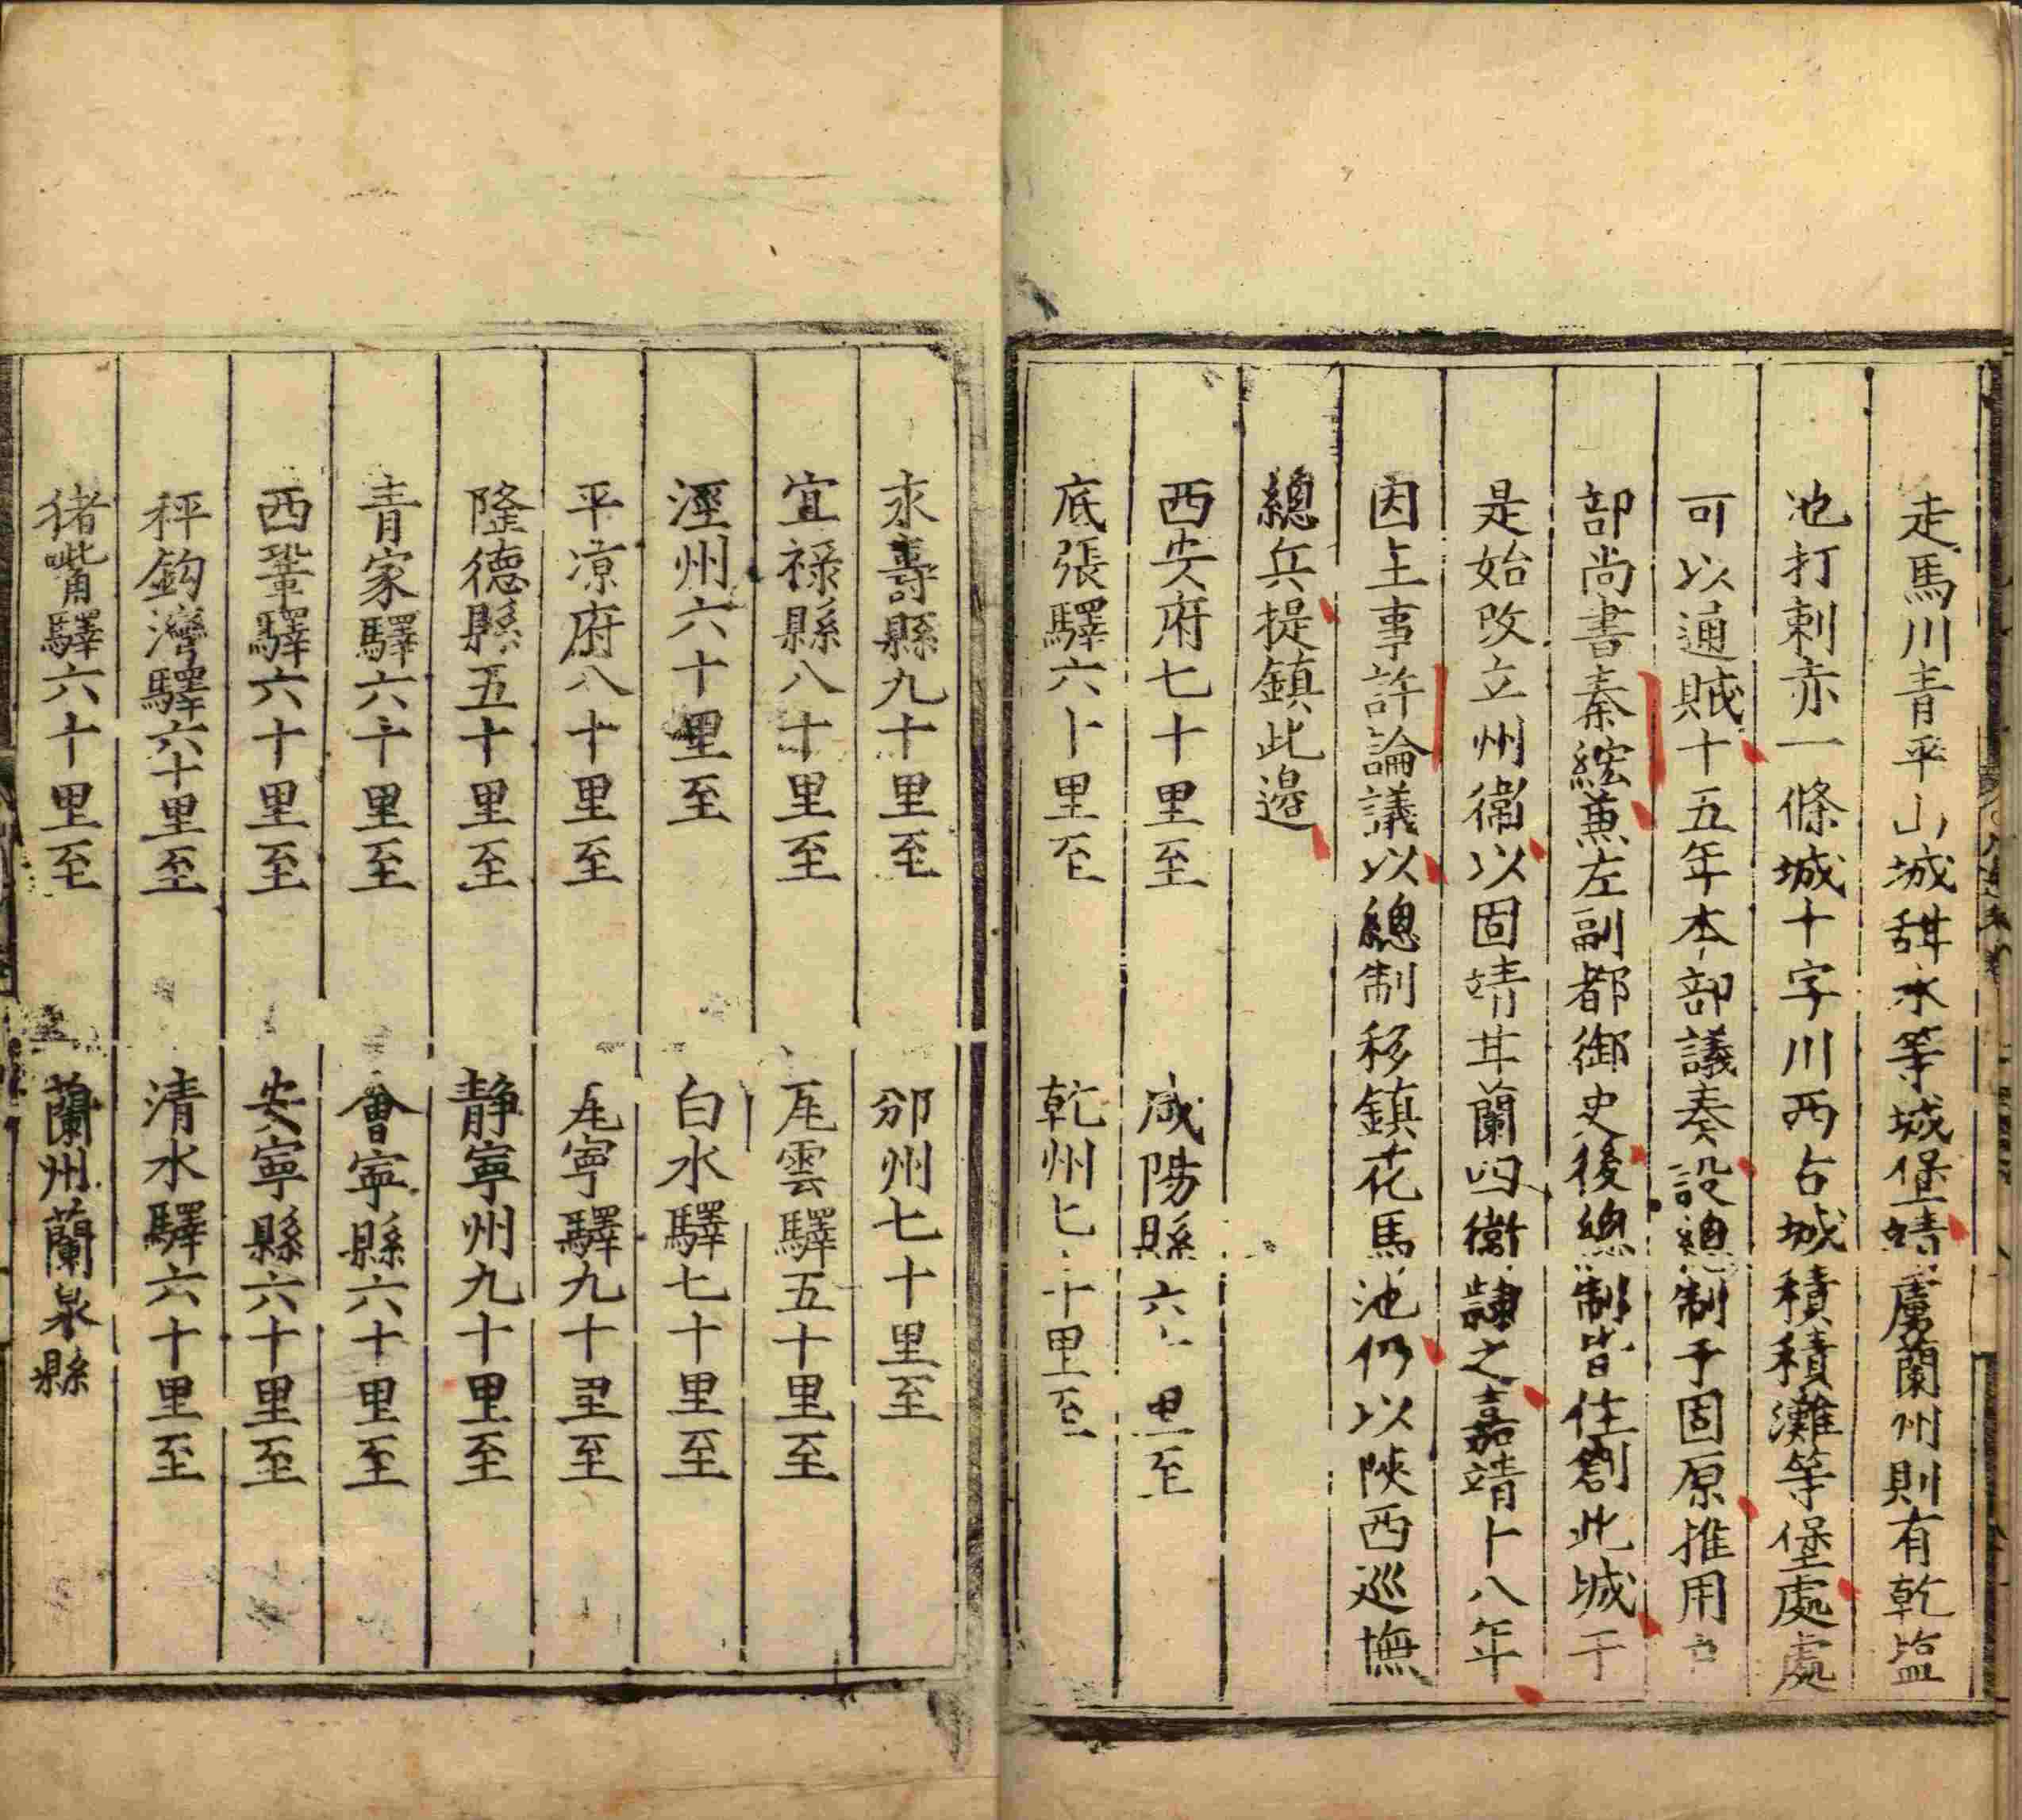 走馬川青平山城甜水等城堡靖虜蘭州則有乾盐
池打剌赤一條城十字川西占城積積灘等堡處處
可以通賊十五年本部議奏設總制于固原推用
部尚書秦綋兼左副都御史後總制皆住劄此城于
是始改立州衞以固靖甘蘭四衞隸之嘉靖十八年
因主事許論議以總制移鎮花馬池仍以陜西巡撫
總兵提鎮此邊
西安府七十里至 咸陽縣六十里至
底張驛六十里至 乾州七十里至
永壽縣九十里至 邠州七十里至
宜祿縣八十里至 瓦雲驛五十里至
涇州六十里至 白水驛七十里至
平凉府八十里至 瓦寧驛九十里至
隆德縣五十里至 靜寧州九十里至
青家驛六十里至 會寧縣六十里至
西鞏驛六十里至 安寧縣六十里至
秤鈎灣驛六十里至 清水驛六十里至
猪嘴驛六十里至 蘭州蘭泉縣